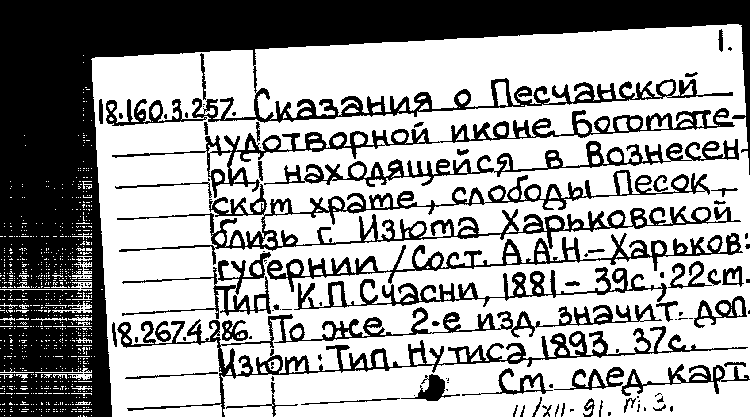 1.
18.160.3.257. Сказания о Песчанской
чудотворной иконе Богомате-
ри, находящейся в Вознесен-
ском храме, слободы Песок,
близь г. Изюма Харьковской
губернии / Сост. А.А.Н. - Харьков:
Тип. К.П. Счасни, 1881. - 39с.; 22см.
18.267.4.286. То же. 2-е изд. значит. доп.
Изюм: Тип. Нутиса, 1893. 37с.
См. след. карт.
11/XII-91. М.З.